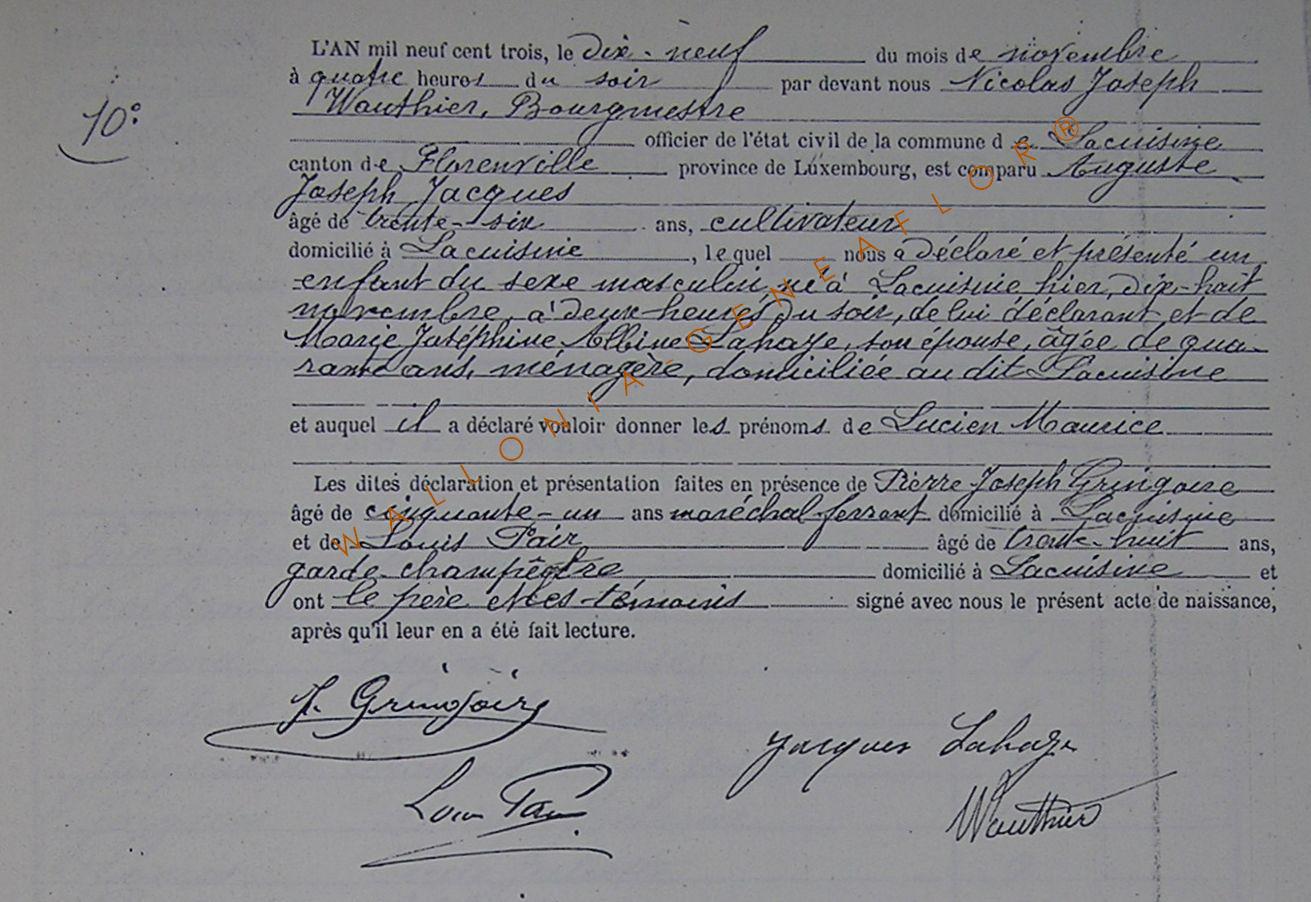 10°
L'AN mil neuf cent trois, le dix-neuf du mois de novembre
à quatre heures du soir par devant nous Nicolas Joseph
Wauthier, Bourgmestre
officier de l'état civil de la commune de Lacuisine
canton de Florenville province de Luxembourg, est comparu Auguste
Joseph Jacques
âgé de trente-six ans, cultivateur
domicilié à Lacuisine, lequel nous a déclaré et présenté un
enfant du sexe masculin, né à Lacuisine hier, dix-huit
novembre, à deux heures du soir, de lui déclarant et de
Marie Joséphine Albine Lahaye, son épouse, âgée de qua-
rante ans, ménagère, domiciliée au dit Lacuisine
et auquel il a déclaré vouloir donner les prénoms de Lucien Maurice
Les dites déclaration et présentation faites en présence de Pierre Joseph Gringoire
âgé de cinquante-un ans maréchal ferrant domicilié à Lacuisine
et de Louis Pair âgé de trente-huit ans,
garde champêtre domicilié à Lacuisine et
ont le père et les témoins signé avec nous le présent acte de naissance,
après qu'il leur en a été fait lecture.
J. Gringoire
Jacques Lahaye
Louis Pair
Wauthier
WALLONIA-GENEAFLOR®